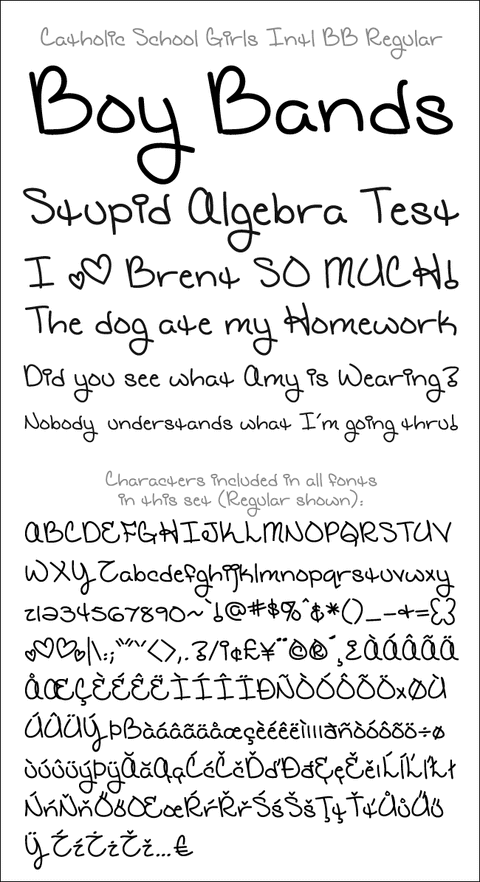 Catholic School Girls Intl BB Regular
Boy Bands
Stupid Algebra Test
I ♥♥ Brent SO MUCH!
The dog ate my Homework
Did you see what Amy is Wearing?
Nobody understands what I'm going thru!
Characters included in all fonts
in this set (Regular shown):
ABCDEFGHIJKLMNOPQRSTUV
WXYZabcdefghijklmnopqrstuvwxy
z1234567890~`!@#$%^&*()_-+={}
♥♥♥|\:;"""'<>,.?/¡¢£¥¨©®´¸¿ÀÁÂÃÄ
ÅÆÇÈÉÊËÌÍÎÏÐÑÒÓÔÕÖ×ØÙ
ÚÛÜÝÞßàáâãäåæçèéêëìíîïðñòóôõö÷ø
ùúûüýþÿĂăĄąĆćČčĎďĐđĘęĚěıĹĺĽľŁł
ŃńŇňŐőŒœŔŕŘřŚśŠšŢţŤťŮůŰű
ŸŹźŻżŽž...€